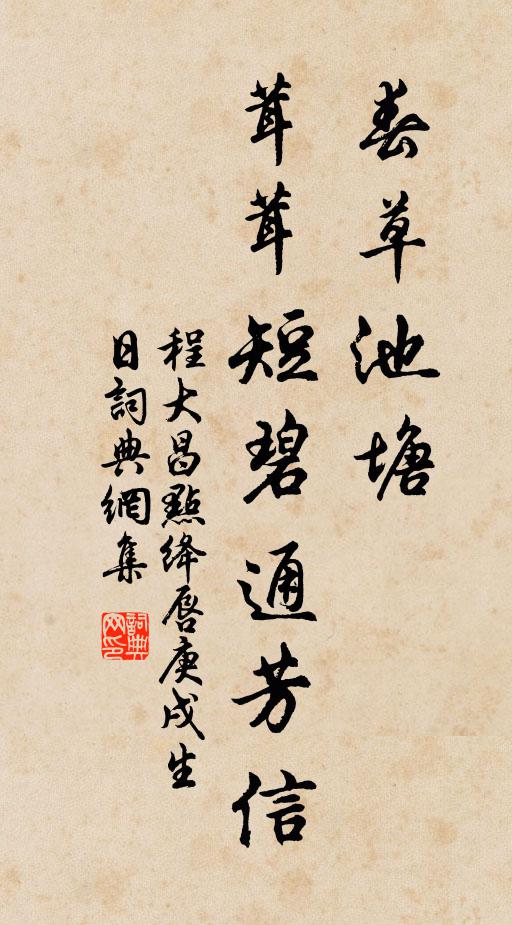 春草池塘
茸茸短碧通芳信
程大昌點绛唇庚戌生
日詞典網集
詞典网印